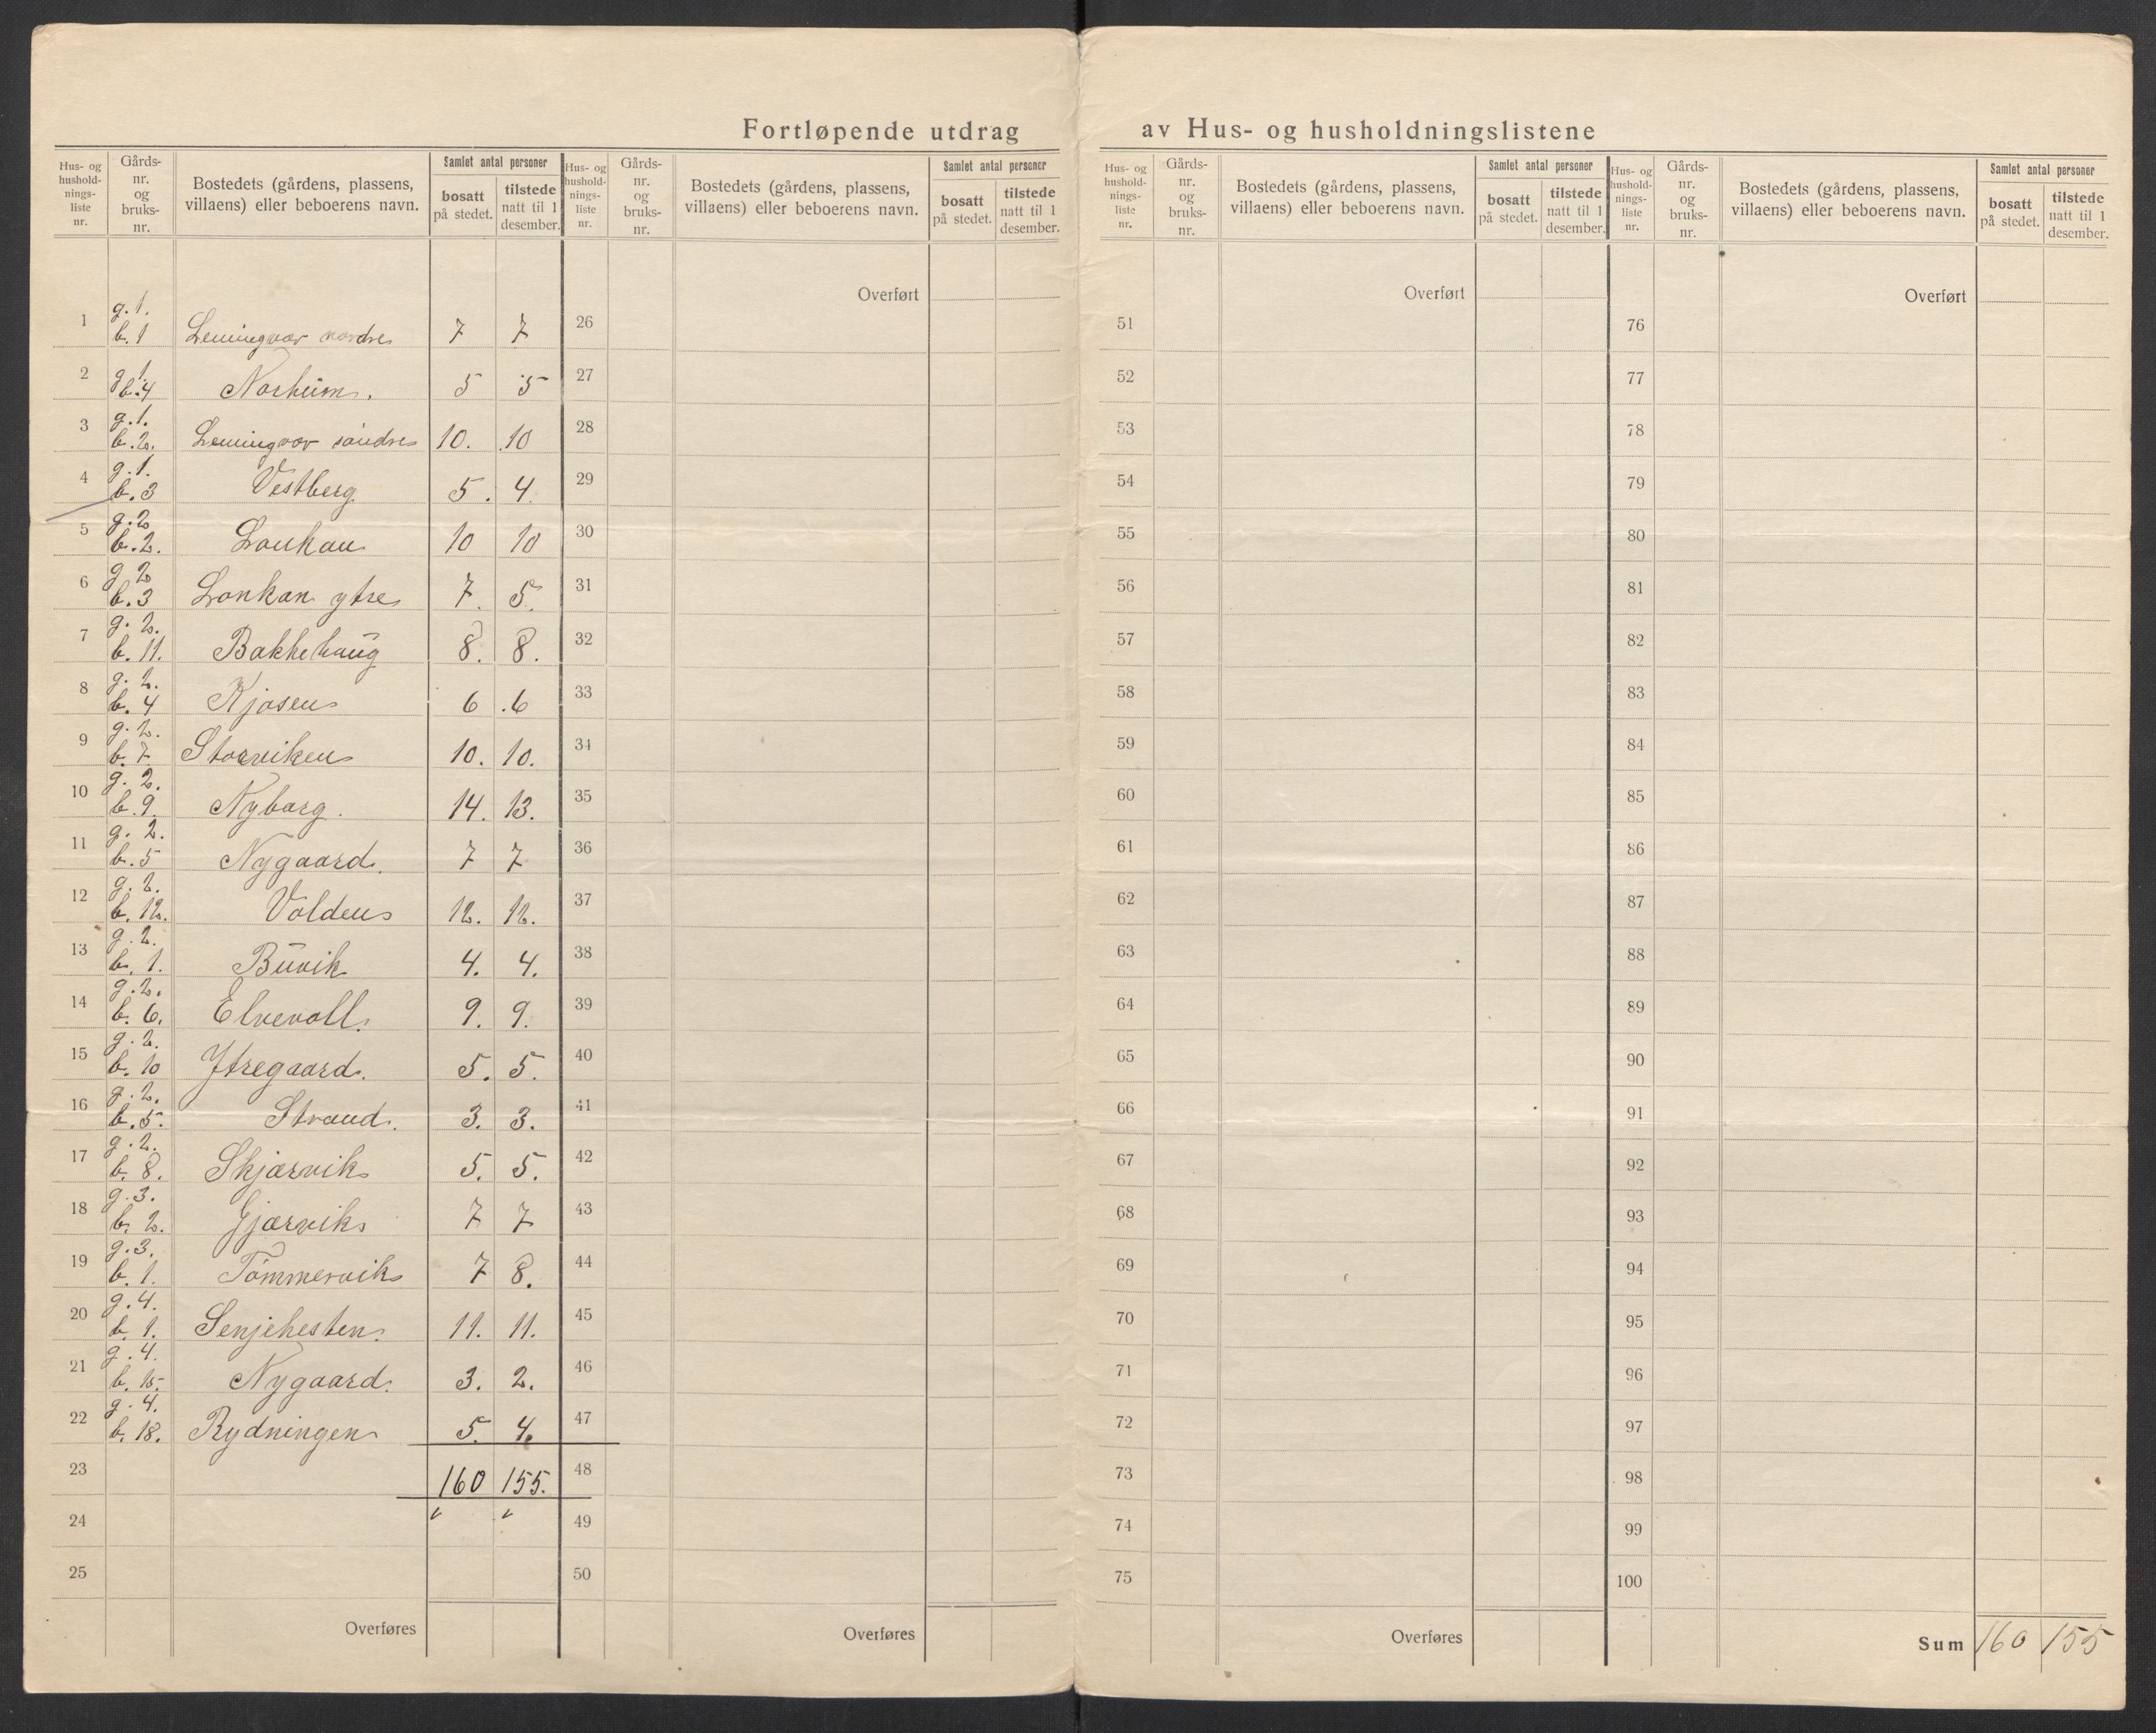 Fortløpende utdrag av Hus- og husholdningslistene
Hus- og husholdnings- liste nr. | Gårds- nr. og bruks- nr. | Bostedets (gårdens, plassens, villaens) eller beboerens navn. | Samlet antal personer | bosatt på stedet. | tilstede natt til 1 desember.
1 g. 1. b. 1 Leiningvær nordre 7 7
2 g. 1. b. 4 Norheim. 5 5
3 g. 1. b. 2. Leiningvær söndre 10. 10
4 g. 1. b. 3 Vestberg 5. 4.
5 g. 2 b. 2. Lonkan 10 10
6 g. 2 b. 3 Lonkan ytre 7. 5.
7 g. 2. b. 11. Bakkehaug 8. 8.
8 g. 2. b. 4 Kjosen 6 6
9 g. 2. b. 7. Storviken 10. 10.
10 g. 2. b. 9. Nyborg. 14. 13.
11 g. 2. b. 5 Nygaard. 7 7
12 g. 2. b. 12. Volden 12. 12.
13 g. 2. b. 1. Buvik 4. 4.
14 g. 2. b. 6. Elvevoll. 9. 9.
15 g. 2. b. 10 Ytregaard. 5. 5.
16 g. 2. b. 5. Strand. 3. 3.
17 g. 2. b. 8. Skjærvik 5. 5.
18 g. 3. b. 2. Gjærvik 7 7
19 g. 3. b. 1. Tömmervik 7 8.
20 g. 4. b. 1. Senjehesten. 11. 11.
21 g. 4. b. 15. Nygaard. 3. 2.
22 g. 4. b. 18. Rydningen 5. 4.
23 160 155.
24
25
Overføres
Hus- og husholdnings- liste nr. | Gårds- nr. og bruks- nr. | Bostedets (gårdens, plassens, villaens) eller beboerens navn. | Samlet antal personer | bosatt på stedet. | tilstede natt til 1 desember.
Overført
26
27
28
29
30
31
32
33
34
35
36
37
38
39
40
41
42
43
44
45
46
47
48
49
50
Overføres
Hus- og husholdnings- liste nr. | Gårds- nr. og bruks- nr. | Bostedets (gårdens, plassens, villaens) eller beboerens navn. | Samlet antal personer | bosatt på stedet. | tilstede natt til 1 desember.
Overført
51
52
53
54
55
56
57
58
59
60
61
62
63
64
65
66
67
68
69
70
71
72
73
74
75
Overføres
Hus- og husholdnings- liste nr. | Gårds- nr. og bruks- nr. | Bostedets (gårdens, plassens, villaens) eller beboerens navn. | Samlet antal personer | bosatt på stedet. | tilstede natt til 1 desember.
Overført
76
77
78
79
80
81
82
83
84
85
86
87
88
89
90
91
92
93
94
95
96
97
98
99
100
Sum 160 155